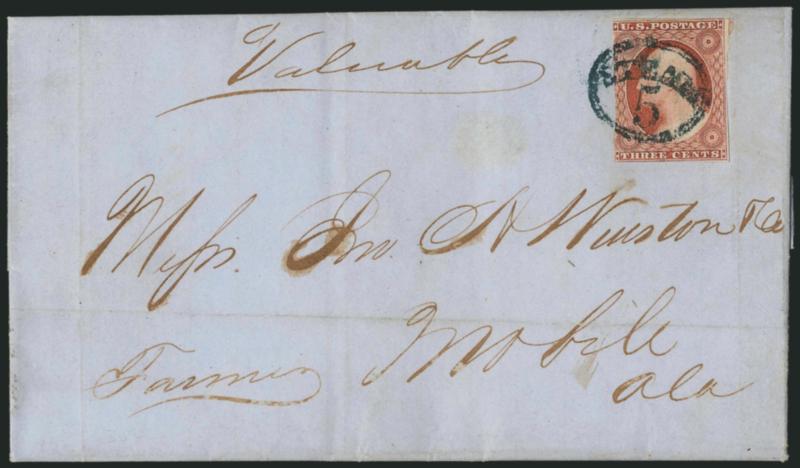 Valuable
U.S. POSTAGE
STEAM
5
THREE CENTS
Messrs. Jno. A Winston & Co
Mobile
Farmer
Ala